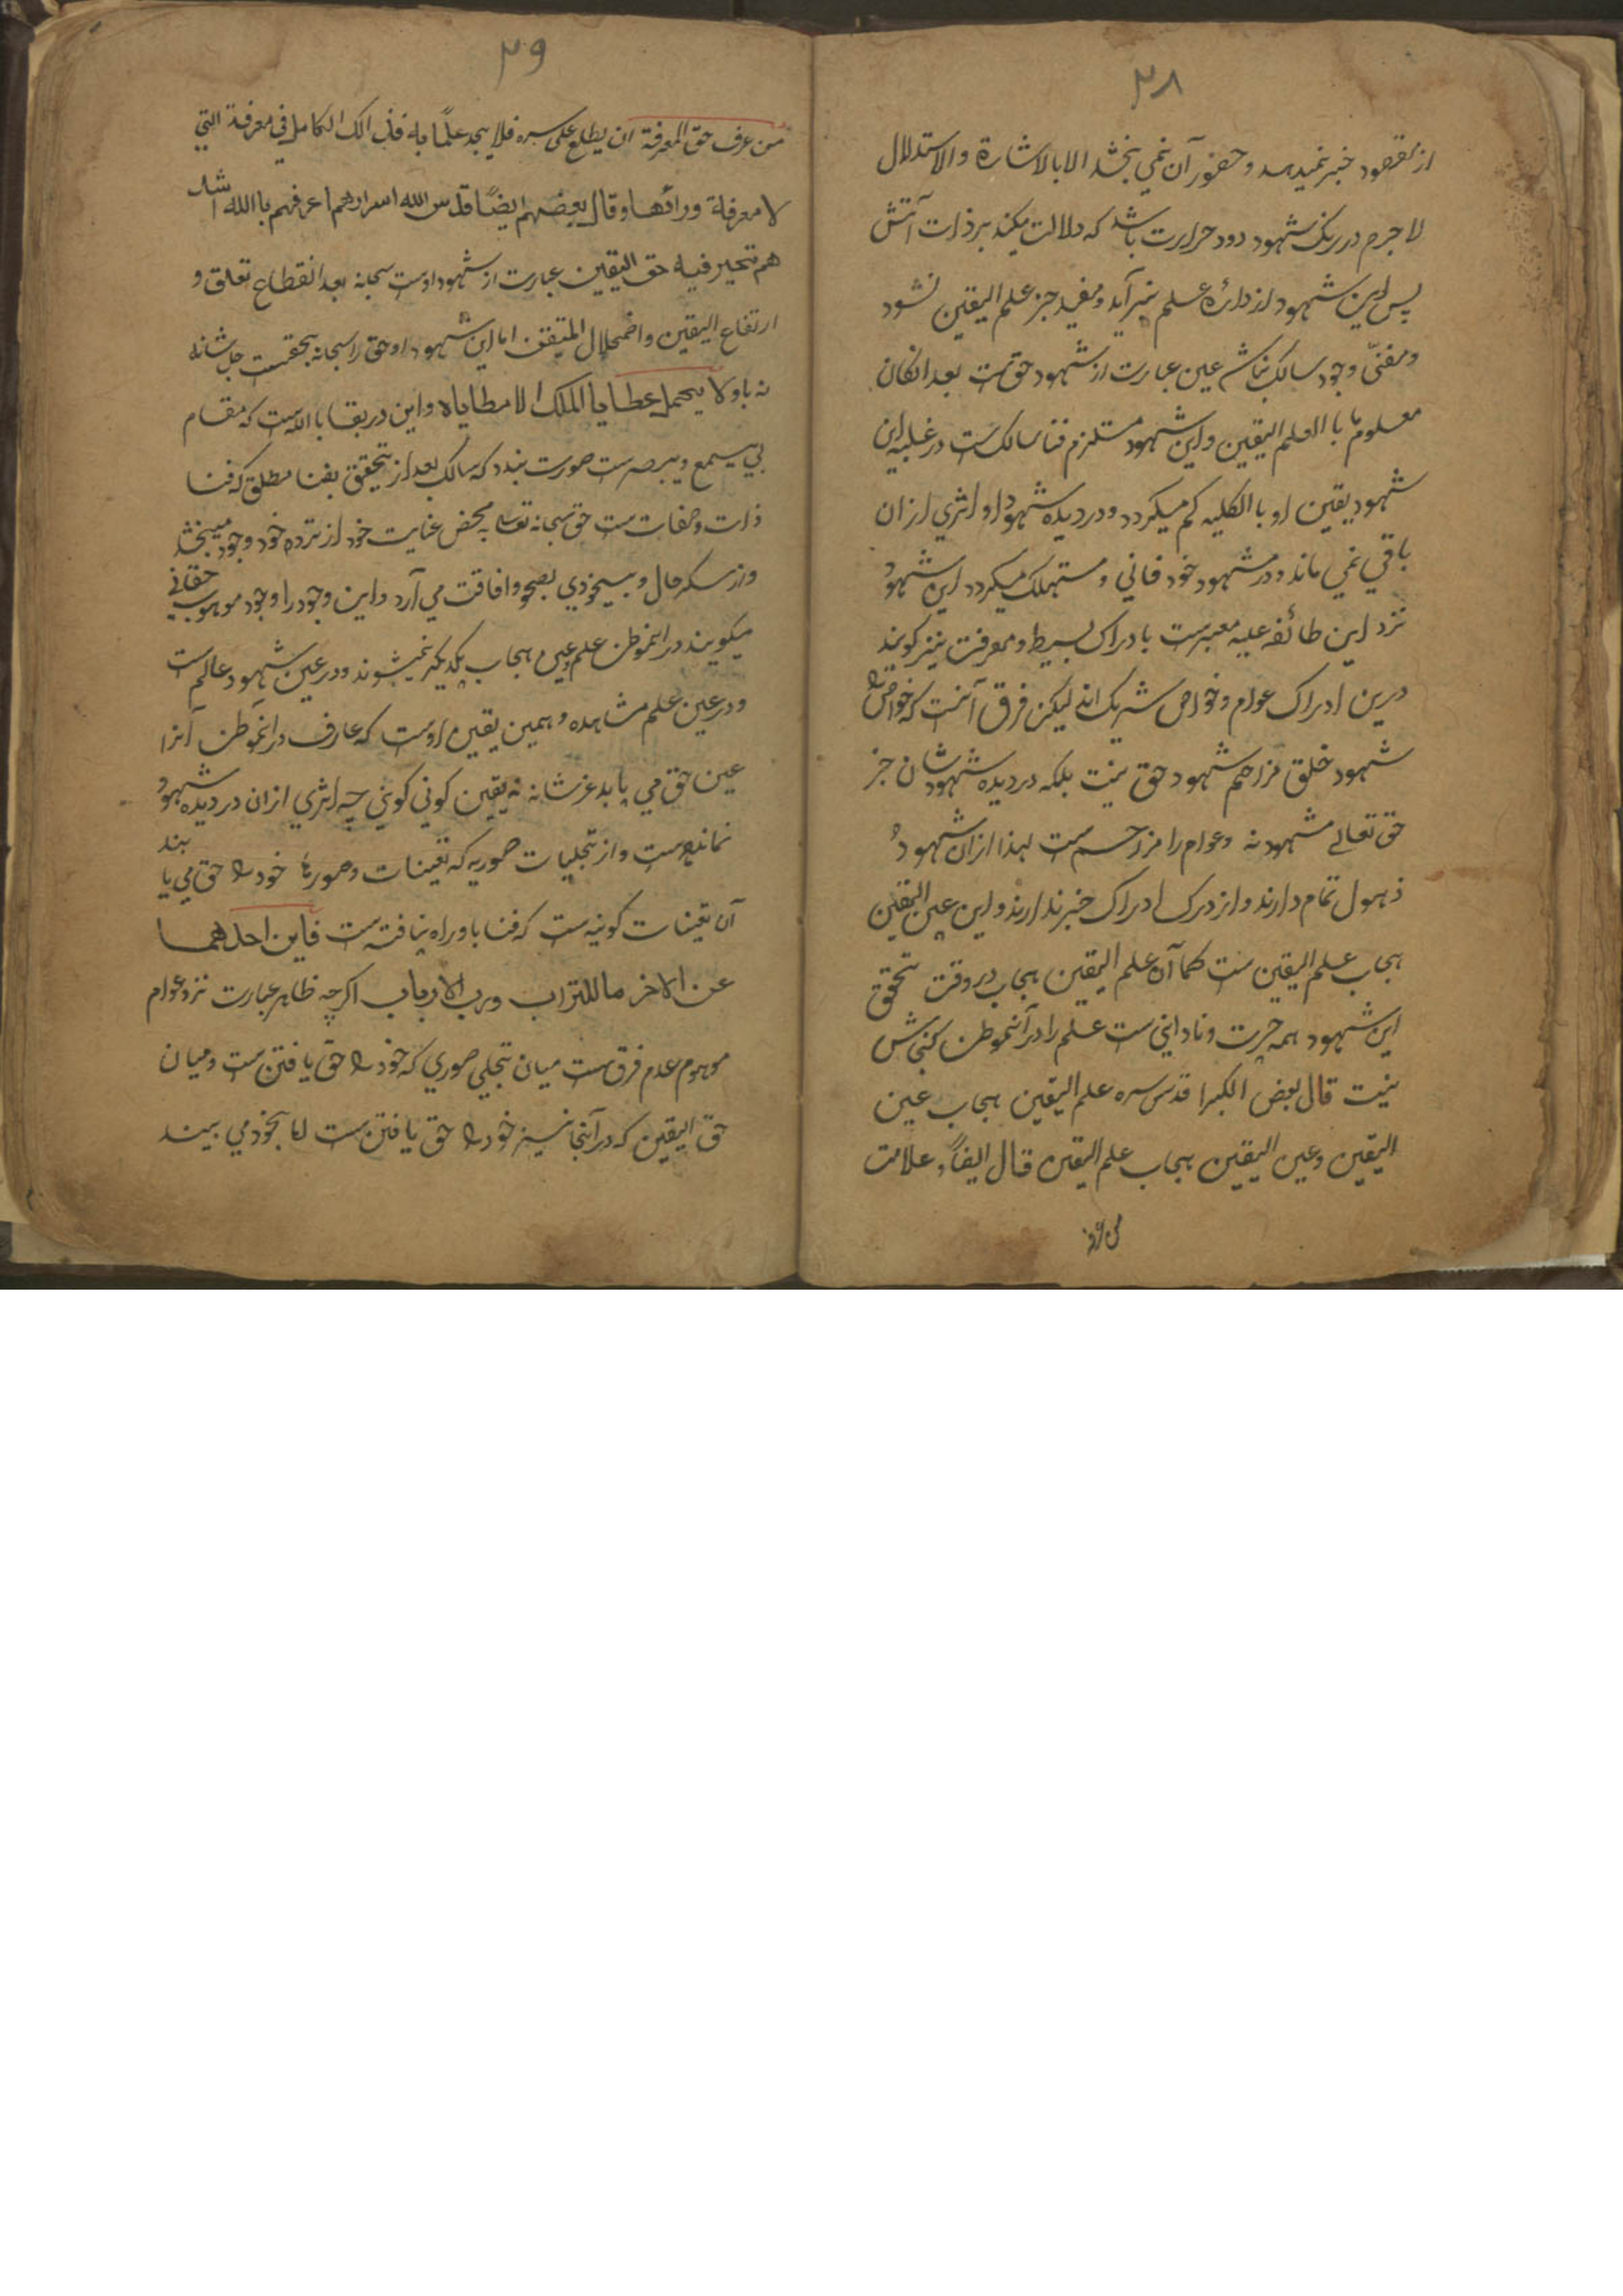 ۳۸
از مقصود خبر نمیدهد و حضور آن نمي بخشد الا بالاشارة والاستدلال
لاجرم در رنک شهود دود حرارت باشد که دلالت میکند بر ذات آتش
پس این شهود از دائره علم نبر آید و مفید جز علم الیقین نشود
و مفنیّ وجود سالک نباشد عین عبارت از شهود حق ست بعد ان کان
معلوما با العلم الیقین و این شهود مستلزم فنا سالک ست در غلبه این
شهود یقین او با الکلیه کم میکردد و در دیده شهود او اثري از ان
باقي نمي ماند و در مشهود خود فاني و مستهلک میکردد این شهود
نزد این طائفه علیه معبرست بادراک بسیط و معرفت نیز کویند
درین ادراک عوام و خواص شریک اند لیکن فرق آنست که خواص را
شهود خلق مزاحم شهود حق نیست بلکه در دیده شهود شان جز
حق تعالے مشهود نه و عوام را مزاحم ست لهذا از ان شهود
ذهول تمام دارند و از درک ادراک خبر ندارند و این عین الیقین
حجاب علم الیقین ست کما آن علم الیقین حجاب در وقت تحقق
این شهود همه حیرت و ناداني ست علم را در آنموطن کنجاش
نیست قال بعض الکبرا قدس سره علم الیقین حجاب عین
الیقین و عین الیقین حجاب علم الیقین قال ایضاً و علامت
من عرف
۳۹
من عرف حق المعرفة ان یطلع علی سره فلا یجد علمًا به فذالک الکامل في معرفة التي
لا معرفة ورائها وقال بعضهم ایضًا قدس الله اسرارهم اعرفهم باالله اشد
هم تحیر فیه حق الیقین عبارت از شهود اوست سبحانه بعد انقطاع تعلق و
ارتفاع الیقین و اضمحلال المتیقن اما این شهود او حق را سبحانه بحقست جل شانه
نه باو لا یحمل عطایا الملک الا مطایاه و این در بقا با الله ست که مقام
بي یسمع و یبصر ست صورت بندد که سالک بعد از تحقق بفنا مطلق که فنا
ذات و صفات ست حق سبحانه تعالی به محض عنایت خود از نزد خود وجود میبخشد
و از سکر حال و بیخودي بصحو و افاقت مي آرد و این وجود را وجود موهوب حقاني
میکویند در انموطن علم و عین حجاب یکدیکر نمیشوند و در عین شهود عالم ست
و در عین علم مشاهده و همین یقین اوست که عارف در انموطن آنرا
عین حق مي یابد عز شانه نه یقین کوني کوني چه اثري از ان در دیده شهود
نمانده ست و از تجلیات صوریه که تعینات و صورة خود را حق مي یا بند
آن تعینات کونیه ست که فنا باو راه نیافته ست فاین احدهما
عن الاخر ما للتراب ورب الارباب اکرچه ظاهر عبارت نزد عوام
موهوم عدم فرق ست میان تجلي صوري که خود را حق یافتن ست و میان
حق الیقین که در آنجا نیز خود را حق یافتن ست اما بخود مي بیند